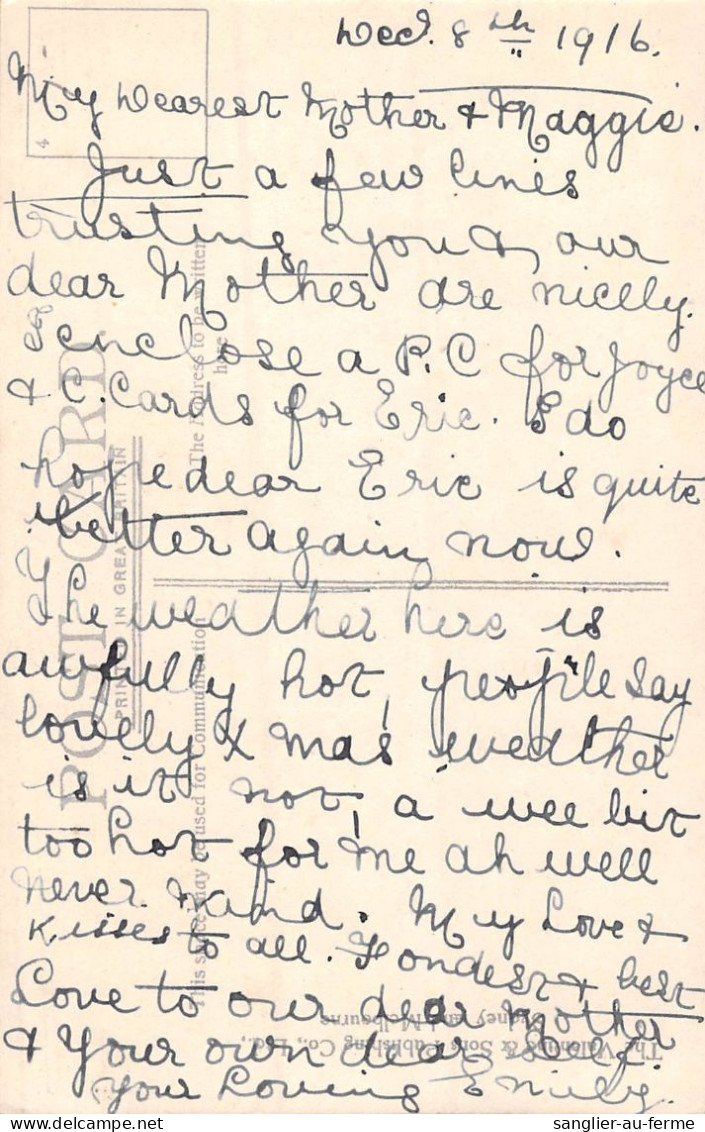 Dec. 8th 1916.
My Dearest Mother & Maggie.
Just a few lines
trusting you & our
dear Mother are nicely.
enclose a P.C for Joyce
& C. Cards for Eric. I do
hope dear Eric is quite
better again now.
The weather here is
awfully hot, people say
lovely Xmas weather
is it not, a wee bit
too hot for me ah well
never mind. My Love &
Kisses to all. Fondest & best
Love to our dear Mother
& your own dear self.
Your Loving Emily.
4
POST CARD
PRINTED IN GREAT BRITAIN
This space may be used for Communication
The Address to be written
here
The Valentine & Sons Publishing Co., Ltd.,
Sydney and Melbourne
sanglier-au-ferme